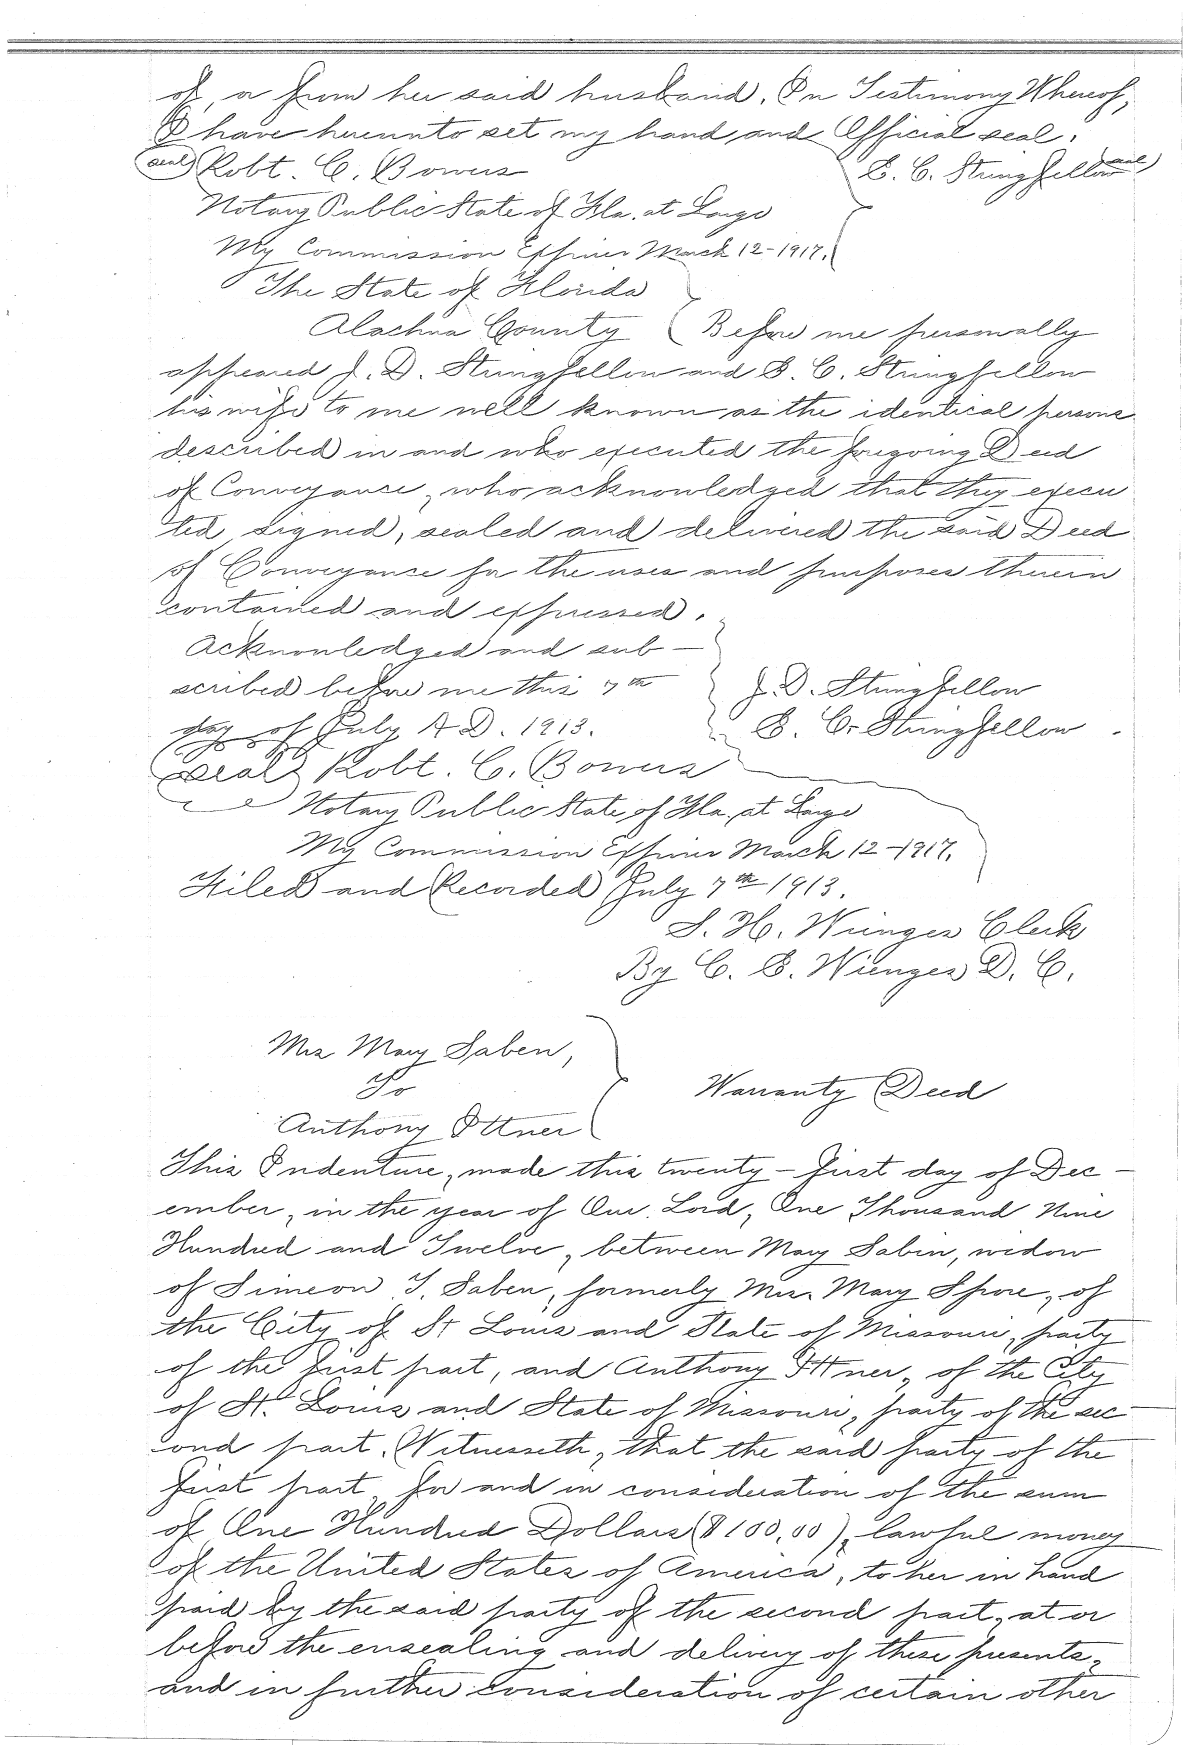 of, or from her said husband. In Testimony Whereof,
I have hereunto set my hand and Official seal.
(seal) Robt. C. Bowers E. C. Stringfellow (seal)
Notary Public State of Fla. at Large
My Commission Expires March 12-1917.
The State of Florida
Alachua County Before me personally
appeared J. D. Stringfellow and E. C. Stringfellow
his wife to me well known as the identical persons
described in and who executed the foregoing Deed
of Conveyance, who acknowledged that they execu
ted, signed, sealed and delivered the said Deed
of Conveyance for the uses and purposes therein
contained and expressed.
Acknowledged and sub-
scribed before me this 7th J. D. Stringfellow
day of July A D. 1913. E. C. Stringfellow
(Seal) Robt. C. Bowers
Notary Public State of Fla. at Large
My Commission Expires March 12-1917.
Filed and Recorded July 7th 1913.
S. H. Wienges Clerk
By C. E. Wienges D. C.
Mrs Mary Saben,
To Warranty Deed
Anthony Ittner
This Indenture, made this twenty-first day of Dec-
ember, in the year of Our Lord, One Thousand Nine
Hundred and Twelve, between Mary Sabin, widow
of Simeon T. Saben, formerly Mrs. Mary Spore, of
the City of St Louis and State of Missouri, party
of the first part, and Anthony Ittner, of the City
of St. Louis and State of Missouri, party of the sec
ond part. Witnesseth, that the said party of the
first part, for and in consideration of the sum
of One Hundred Dollars ($100.00), lawful money
of the United States of America, to her in hand
paid by the said party of the second part, at or
before the ensealing and delivery of these presents,
and in further consideration of certain other